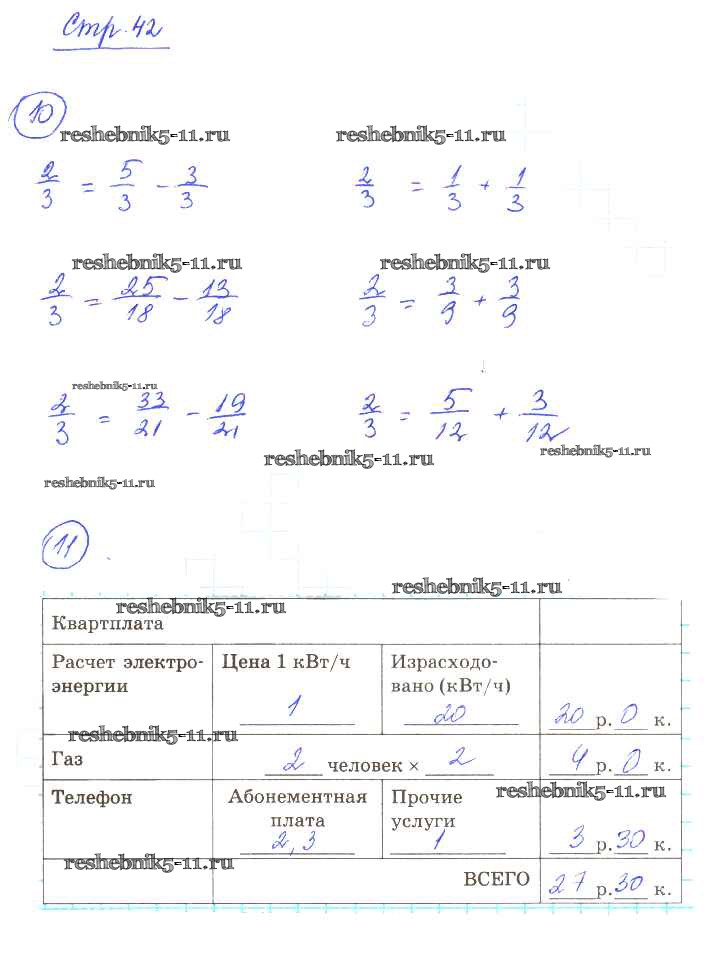 Стр. 42
10
reshebnik5-11.ru reshebnik5-11.ru
2/3 = 5/3 - 3/3 2/3 = 1/3 + 1/3
reshebnik5-11.ru reshebnik5-11.ru
2/3 = 25/18 - 13/18 2/3 = 3/9 + 3/9
reshebnik5-11.ru
2/3 = 33/21 - 19/21 2/3 = 5/12 + 3/12
reshebnik5-11.ru
reshebnik5-11.ru
reshebnik5-11.ru
11
reshebnik5-11.ru
reshebnik5-11.ru
Квартплата
Расчет электро- Цена 1 кВт/ч Израсходо-
энергии вано (кВт/ч)
1 20 20 р. 0 к.
reshebnik5-11.ru
Газ 2 человек × 2 4 р. 0 к.
Телефон Абонементная Прочие reshebnik5-11.ru
плата услуги
2,3 1 3 р. 30 к.
reshebnik5-11.ru
ВСЕГО 27 р. 30 к.